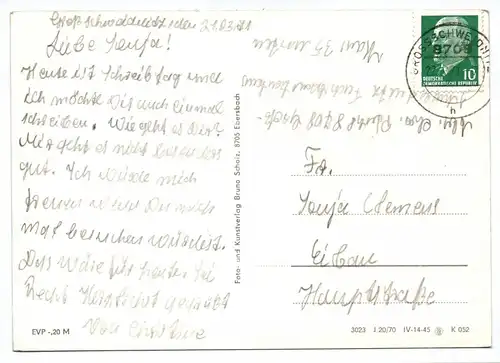 Großschweidnitz, den 21.03.71
Liebe Sonja!
Heute ist Schreibtag und
ich möchte Dir auch einmal
schreiben. Wie geht es Dir?
Mir geht es nicht besonders
gut. Ich würde mich
freuen wenn Du mich
mal besuchen würdest.
Das wäre für heute. Sei
Recht Herzlichst gegrüßt
Von Christine
EVP -,20 M
Foto- und Kunstverlag Bruno Scholz, 8705 Ebersbach
GROSSSCHWEIDNITZ
8705
h
DEUTSCHE
DEMOKRATISCHE REPUBLIK
10
Haus 35 unten
Abs. Chr.
Fr.
Sonja Clemens
Eibau
Hauptstraße
3023 J 20/70 IV-14-45 K 052